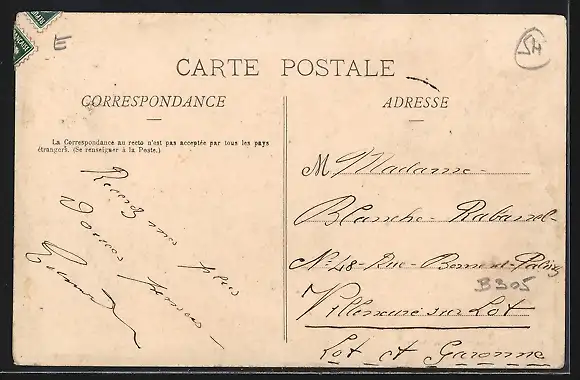 E
CARTE POSTALE
CORRESPONDANCE
La Correspondance au recto n'est pas acceptée par tous les pays
étrangers. (Se renseigner à la Poste.)
Recevez mes plus
Douces pensées
ADRESSE
M Madame
Blanche Rabanel
N° 48 Rue Bernard Palissy
B305
Villeneuve sur Lot
Lot et Garonne